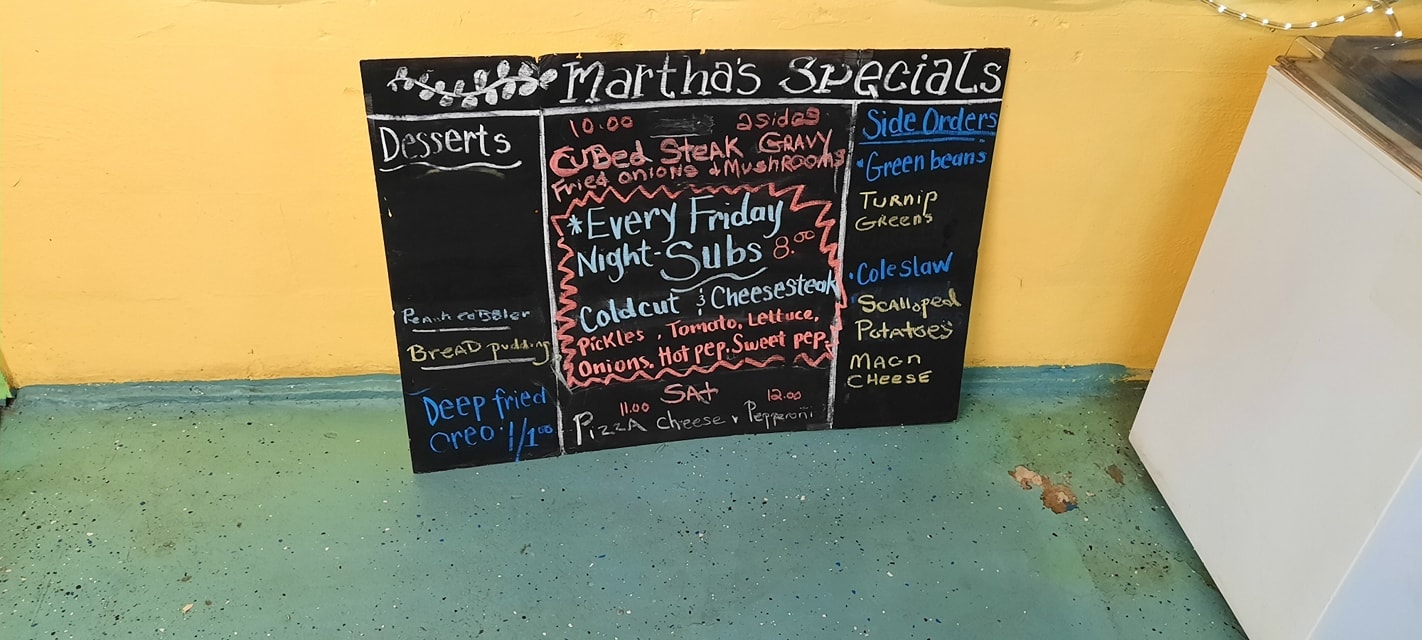 Martha's Specials
Desserts
Peach cobbler
Bread pudding
Deep fried
oreo 1/1.00
10.00 2 sides
Cubed Steak Gravy
Fried onions & Mushrooms
*Every Friday
Night - Subs 8.00
Coldcut & Cheesesteak
Pickles, Tomato, Lettuce,
Onions. Hot pep. Sweet pep.
Sat
11.00 12.00
Pizza Cheese & Pepperoni
Side Orders
• Green beans
Turnip
Greens
• Coleslaw
Scalloped
Potatoes
Mac n
Cheese